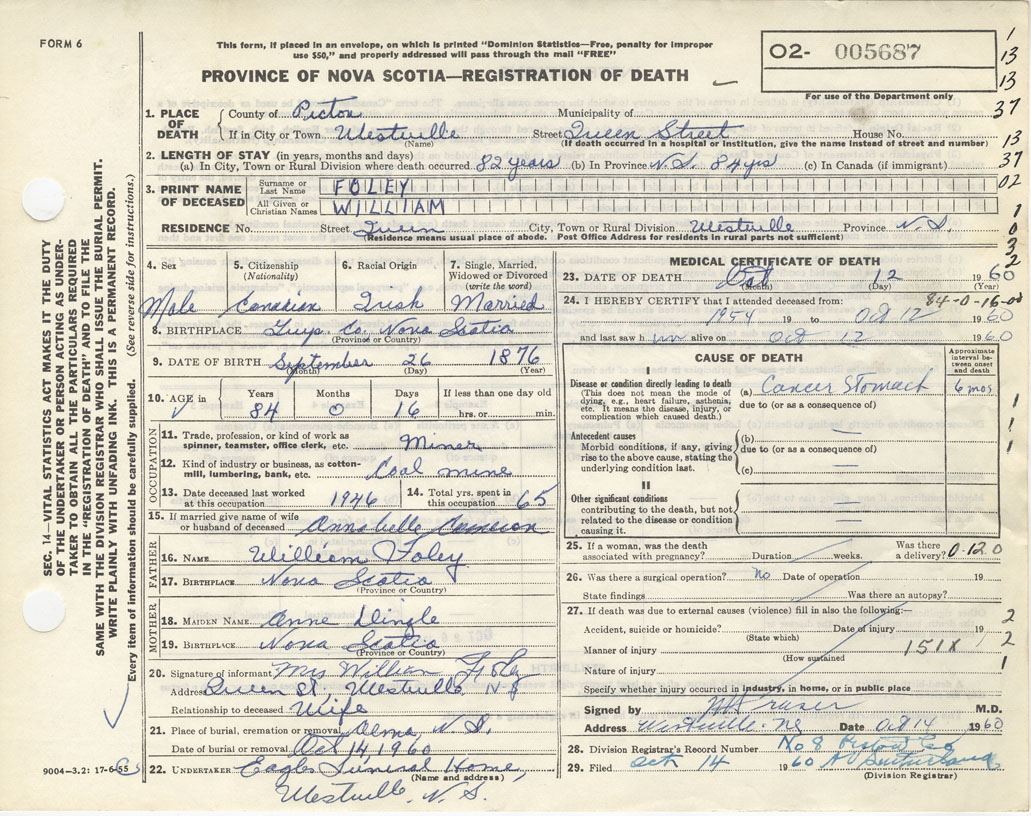 FORM 6
This form, if placed in an envelope, on which is printed "Dominion Statistics—Free, penalty for improper
use $50," and properly addressed will pass through the mail "FREE"
PROVINCE OF NOVA SCOTIA—REGISTRATION OF DEATH
O2- 005687
For use of the Department only
1
13
13
37
13
37
02
1
0
3
2
1. PLACE OF DEATH
County of Pictou Municipality of
If in City or Town Westville Street Queen Street House No.
(Name) (If death occurred in a hospital or institution, give the name instead of street and number)
2. LENGTH OF STAY (in years, months and days)
(a) In City, Town or Rural Division where death occurred 82 years (b) In Province N.S. 84 yrs (c) In Canada (if immigrant)
3. PRINT NAME OF DECEASED
Surname or Last Name FOLEY
All Given or Christian Names WILLIAM
RESIDENCE No. Street Queen City, Town or Rural Division Westville Province N.S.
(Residence means usual place of abode. Post Office Address for residents in rural parts not sufficient)
4. Sex 5. Citizenship (Nationality) 6. Racial Origin 7. Single, Married, Widowed or Divorced (write the word)
Male Canadian Irish Married
8. BIRTHPLACE Guys. Co. Nova Scotia
(Province or Country)
9. DATE OF BIRTH September 26 1876
(Month) (Day) (Year)
10. AGE in Years Months Days If less than one day old
84 0 16 hrs. or min.
OCCUPATION
11. Trade, profession, or kind of work as spinner, teamster, office clerk, etc. Miner
12. Kind of industry or business, as cotton-mill, lumbering, bank, etc. Coal mine
13. Date deceased last worked at this occupation 1946 14. Total yrs. spent in this occupation 65
15. If married give name of wife or husband of deceased Annabelle Cameron
FATHER
16. NAME William Foley
17. BIRTHPLACE Nova Scotia
(Province or Country)
MOTHER
18. MAIDEN NAME Anne Dingle
19. BIRTHPLACE Nova Scotia
(Province or Country)
20. Signature of informant Mrs William Foley
Address Queen St. Westville N S
Relationship to deceased Wife
21. Place of burial, cremation or removal Alma, N.S.
Date of burial or removal Oct 14 1960
22. UNDERTAKER Eagles Funeral Home,
(Name and address)
Westville, N.S.
MEDICAL CERTIFICATE OF DEATH
23. DATE OF DEATH Oct 12 1960
(Month) (Day) (Year)
84-0-16-00
24. I HEREBY CERTIFY that I attended deceased from:
1954 19 to Oct 12 1960
and last saw h im alive on Oct 12 1960
CAUSE OF DEATH
Approximate interval between onset and death
I
Disease or condition directly leading to death (a) Cancer Stomach 6 mos
(This does not mean the mode of dying, e.g., heart failure, asthenia, etc. It means the disease, injury, or complication which caused death.)
due to (or as a consequence of)
Antecedent causes (b) —
Morbid conditions, if any, giving rise to the above cause, stating the underlying condition last.
due to (or as a consequence of)
(c) —
II
Other significant conditions contributing to the death, but not related to the disease or condition causing it.
1
1
1
25. If a woman, was the death associated with pregnancy? Duration weeks. Was there a delivery? 0.12.0
26. Was there a surgical operation? No Date of operation 19
State findings Was there an autopsy?
27. If death was due to external causes (violence) fill in also the following:—
Accident, suicide or homicide? Date of injury 19
(State which)
Manner of injury 151X
(How sustained)
Nature of injury
Specify whether injury occurred in industry, in home, or in public place
2
2
1
Signed by M.D.
Address Westville NS Date Oct 14 1960
28. Division Registrar's Record Number No 8 Pictou Co
29. Filed Oct 14 1960 Sutherland
(Division Registrar)
SEC. 14—VITAL STATISTICS ACT MAKES IT THE DUTY
OF THE UNDERTAKER OR PERSON ACTING AS UNDER-
TAKER TO OBTAIN ALL THE PARTICULARS REQUIRED
IN THE "REGISTRATION OF DEATH" AND TO FILE THE
SAME WITH THE DIVISION REGISTRAR WHO SHALL ISSUE THE BURIAL PERMIT.
WRITE PLAINLY WITH UNFADING INK. THIS IS A PERMANENT RECORD.
Every item of information should be carefully supplied. (See reverse side for instructions.)
9004—3.2: 17-6-55